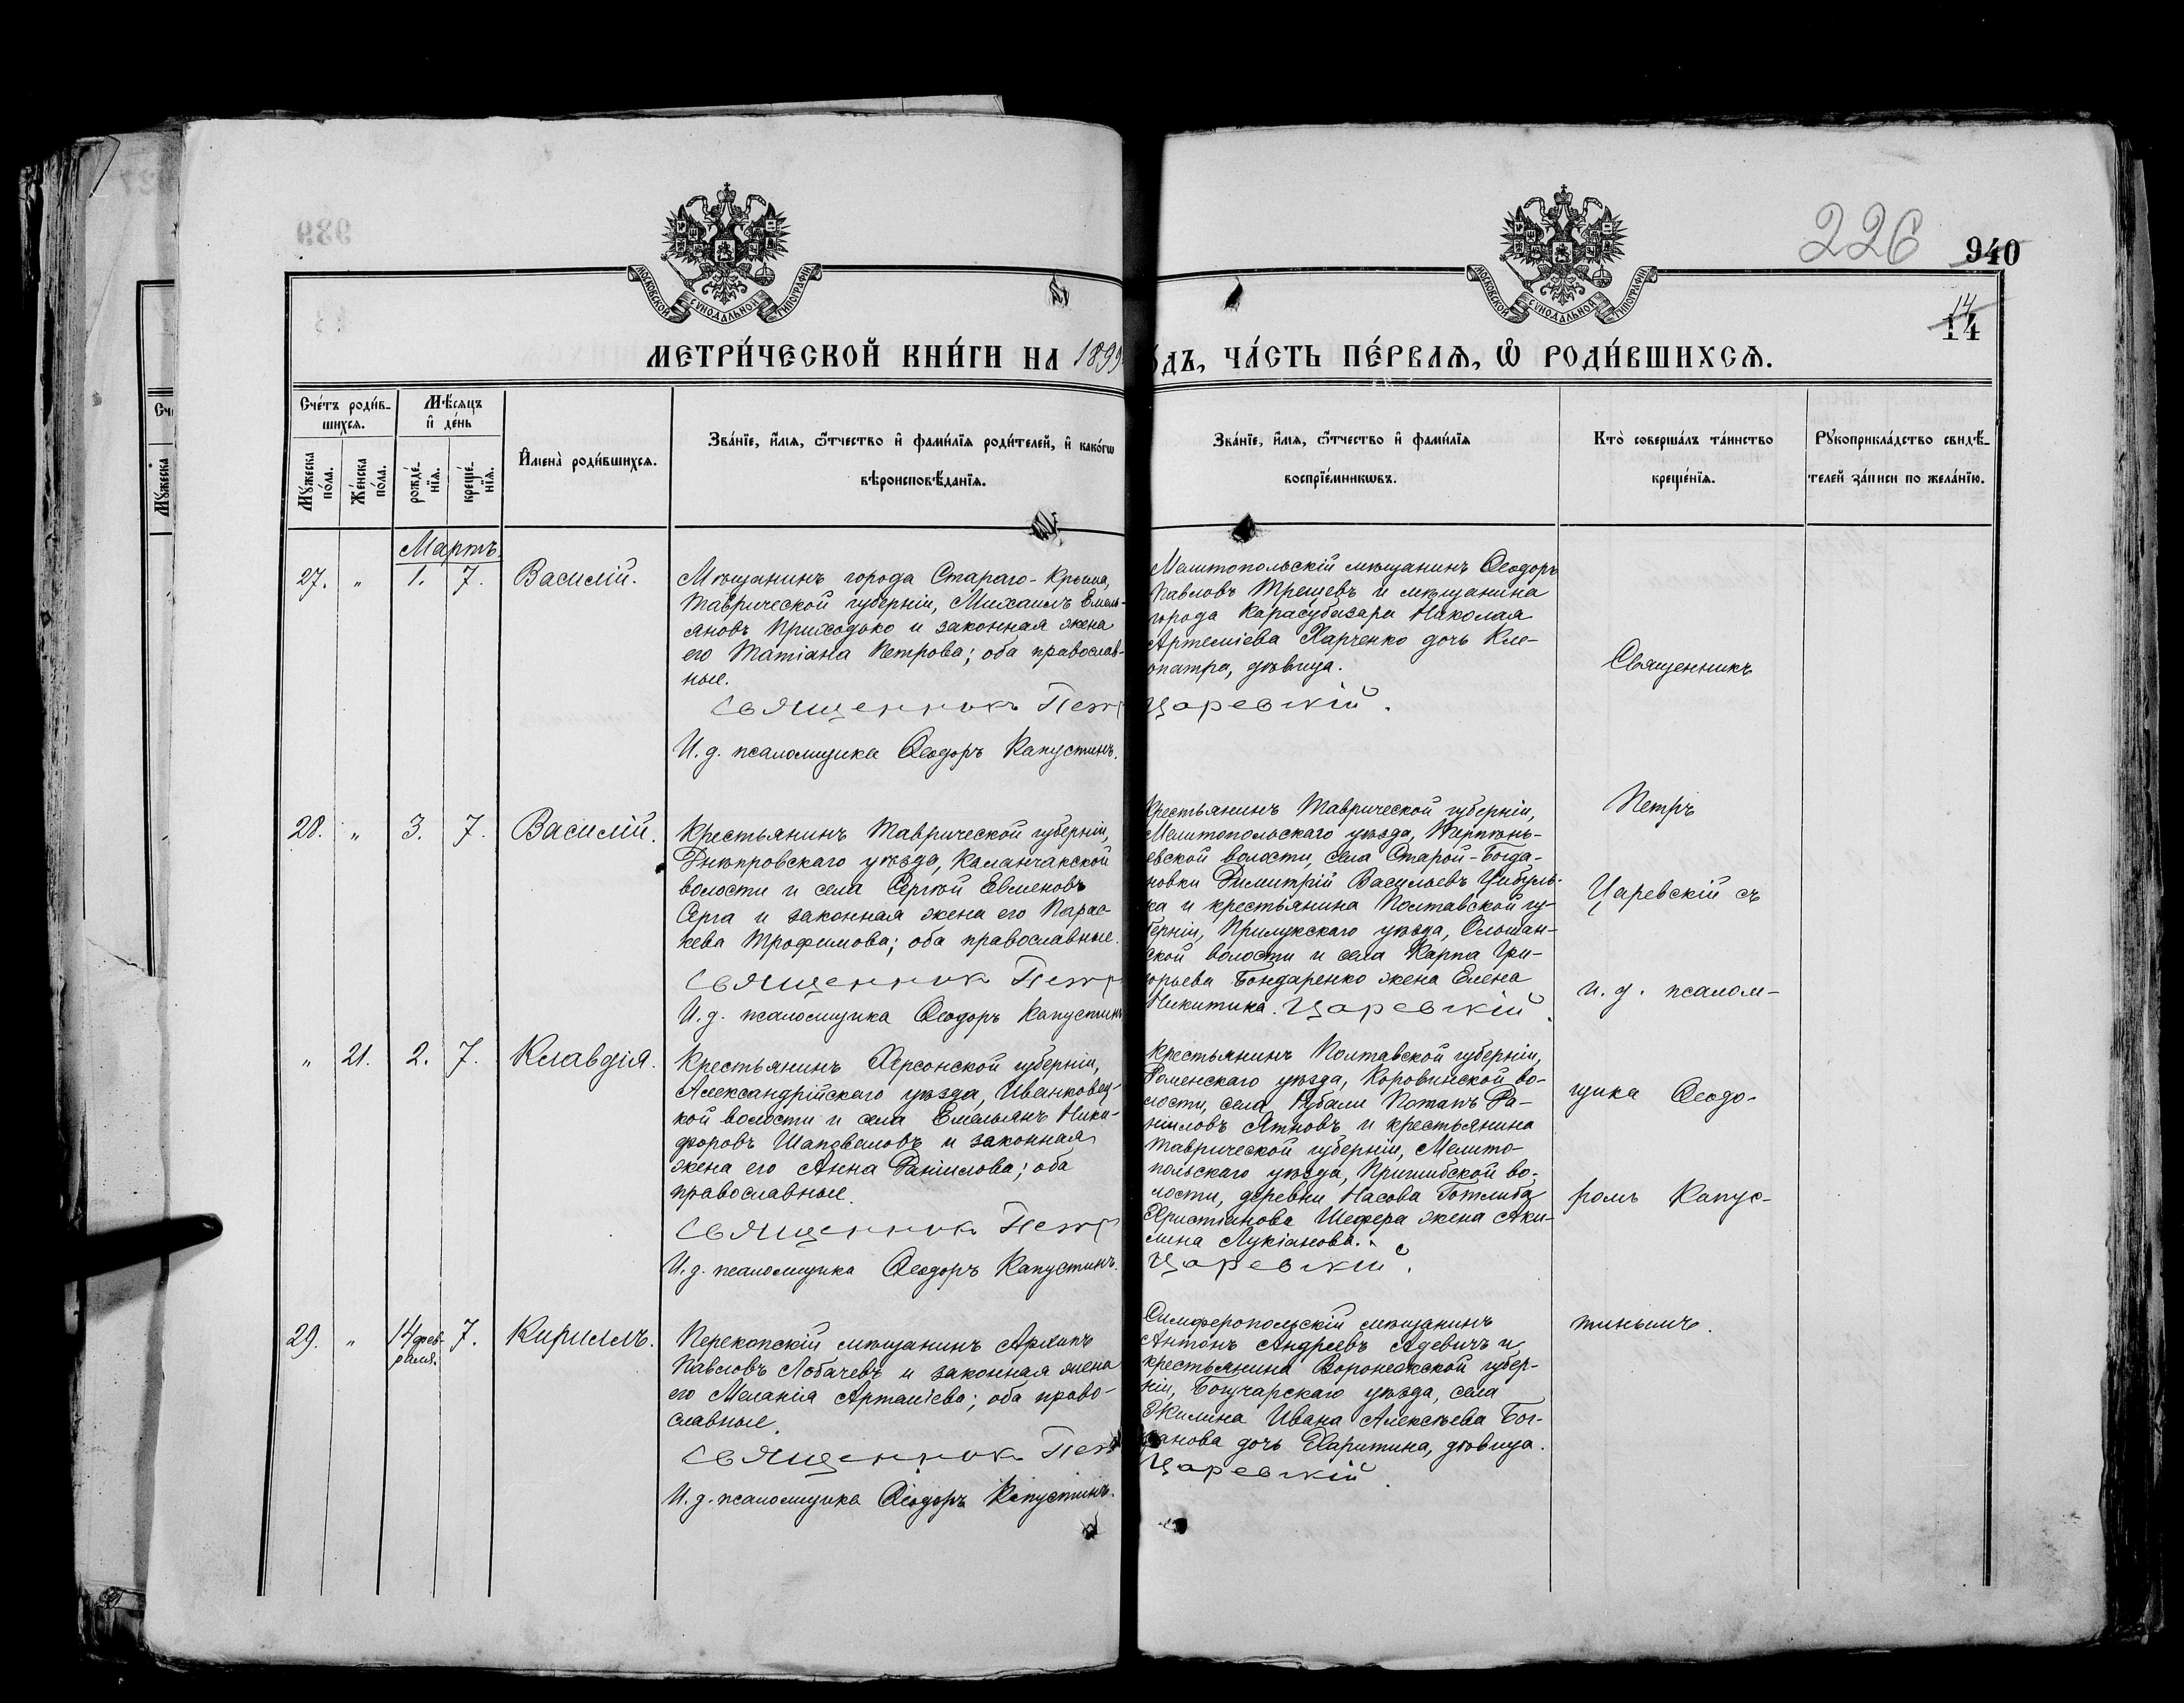 226
940
14
14
МОСКОВСКОЙ СУНОДАЛЬНОЙ ТИПОГРАФІИ
МОСКОВСКОЙ СУНОДАЛЬНОЙ ТИПОГРАФІИ
МЕТРИ́ЧЕСКОЙ КНИ́ГИ НА 1899
О́ДЪ, ЧА́СТЬ ПЕ́РВАѦ, Ѡ҆ РОДИ́ВШИХСѦ.
Сче́тъ роди́в-
шихсѧ.
Мѣ́сяцъ
и҆ де́нь
Мꙋ́жеска
по́ла.
Же́нска
по́ла.
рожде́-
нїѧ.
креще́-
нїѧ.
И҆мена̀ роди́вшихсѧ.
Зва́нїе, и҆́мѧ, ѻ҆́тчество и҆ фами́лїѧ роди́телей, и҆ како́гѡ
вѣроисповѣ́данїѧ.
Зва́нїе, и҆́мѧ, ѻ҆́тчество и҆ фами́лїѧ
воспрїе́мникѡвъ.
Кто̀ соверша́лъ та́инство
креще́нїѧ.
Рꙋкоприкла́дство свидѣ́-
телей за́писи по жела́нїю.
Мартъ.
27. " 1. 7. Василій.
Мѣщанинъ города Стараго-Крыма,
Таврической губерніи, Михаилъ Емель-
яновъ Приходько и законная жена
его Татіана Петрова; оба православ-
ные.
Священникъ Петр
И. д. псаломщика Ѳеодоръ Капустинъ.
Мелитопольскій мѣщанинъ Ѳеодоръ
Павловъ Трещевъ и мѣщанина
города Карасубазара Николая
Артеміева Харченко дочь Кле-
опатра, дѣвица.
Царевскій.
28. " 3. 7. Василій.
Крестьянинъ Таврической губерніи,
Днѣпровскаго уѣзда, Каланчакской
волости и села Сергѣй Евменовъ
Серга и законная жена его Парас-
кева Трофимова; оба православные.
Священник Петр
И. д. псаломщика Ѳеодоръ Капустинъ
Крестьянинъ Таврической губерніи,
Мелитопольскаго уѣзда, Терпѣнь-
евской волости, села Старой-Богда-
новки Димитрій Васильевъ Цибуль-
ка и крестьянина Полтавской гу-
берніи, Прилукскаго уѣзда, Ольшан-
ской волости и села Карпа Гри-
горьева Бондаренко жена Елена
Никитина. Царевскій.
" 21. 2. 7. Клавдія.
Крестьянинъ Херсонской губерніи,
Александрійскаго уѣзда, Иванковец-
кой волости и села Емельянъ Ники-
форовъ Шаповаловъ и законная
жена его Анна Даніилова; оба
православные.
Священник Петр
И. д. псаломщика Ѳеодоръ Капустинъ.
Крестьянинъ Полтавской губерніи,
Роменскаго уѣзда, Коровинской во-
лости, села Потапъ Да-
ніиловъ Ятновъ и крестьянина
Таврической губерніи, Мелито-
польскаго уѣзда, Пришибской во-
лости, деревни Насова Готлиба
Христіанова Шефера жена Аки-
лина Лукіанова.
Царевскій.
29. " 14 фев-
раля. 7. Кириллъ.
Перекопскій мѣщанинъ Архипъ
Павловъ Лобачевъ и законная жена
его Меланія Артеміева; оба право-
славные.
Священник Петр
И. д. псаломщика Ѳеодоръ Капустинъ.
Симферопольскій мѣщанинъ
Антонъ Андреевъ Адевичъ и
крестьянина Воронежской губер-
ніи, Богучарскаго уѣзда, села
Жилина Ивана Алексѣева Бог-
данова дочь Харитина, дѣвица.
Царевскій
Священникъ
Петръ
Царевскій съ
и. д. псалом-
щика Ѳеодо-
ромъ Капус-
тинымъ.